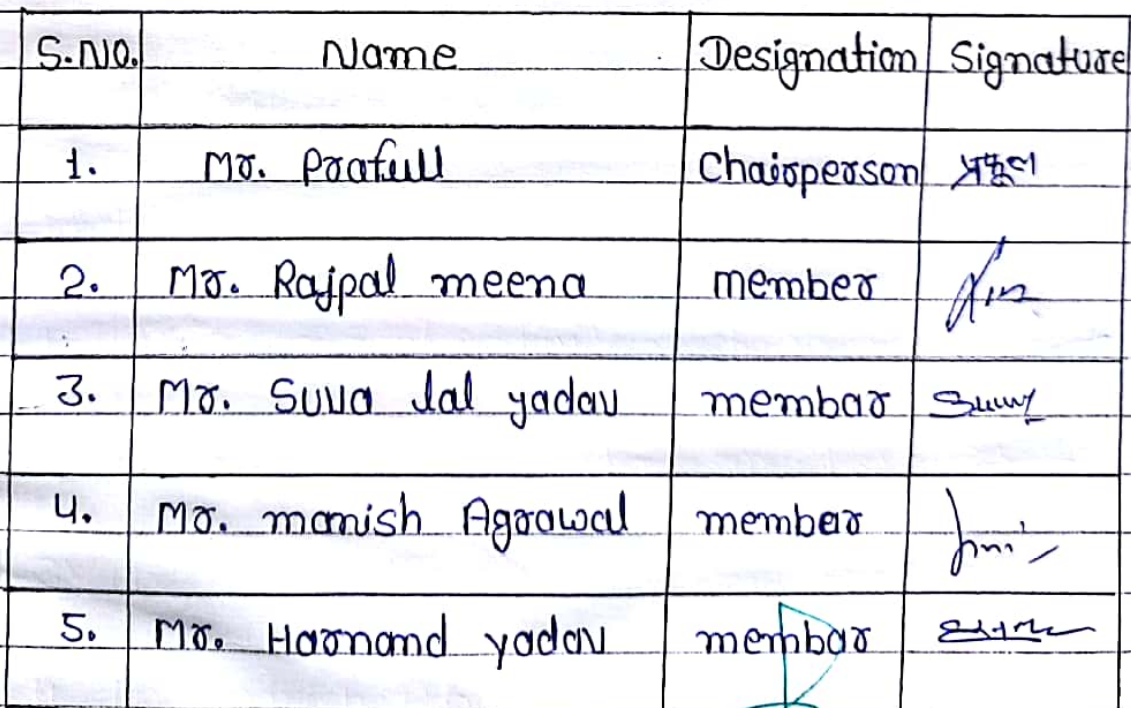 S.NO. Name Designation Signature
1. Mr. Prafull Chairperson प्रफुल
2. Mr. Rajpal meena member
3. Mr. Suva lal yadav membar
4. Mr. manish Agrawal member
5. Mr. Harnand yadav membar